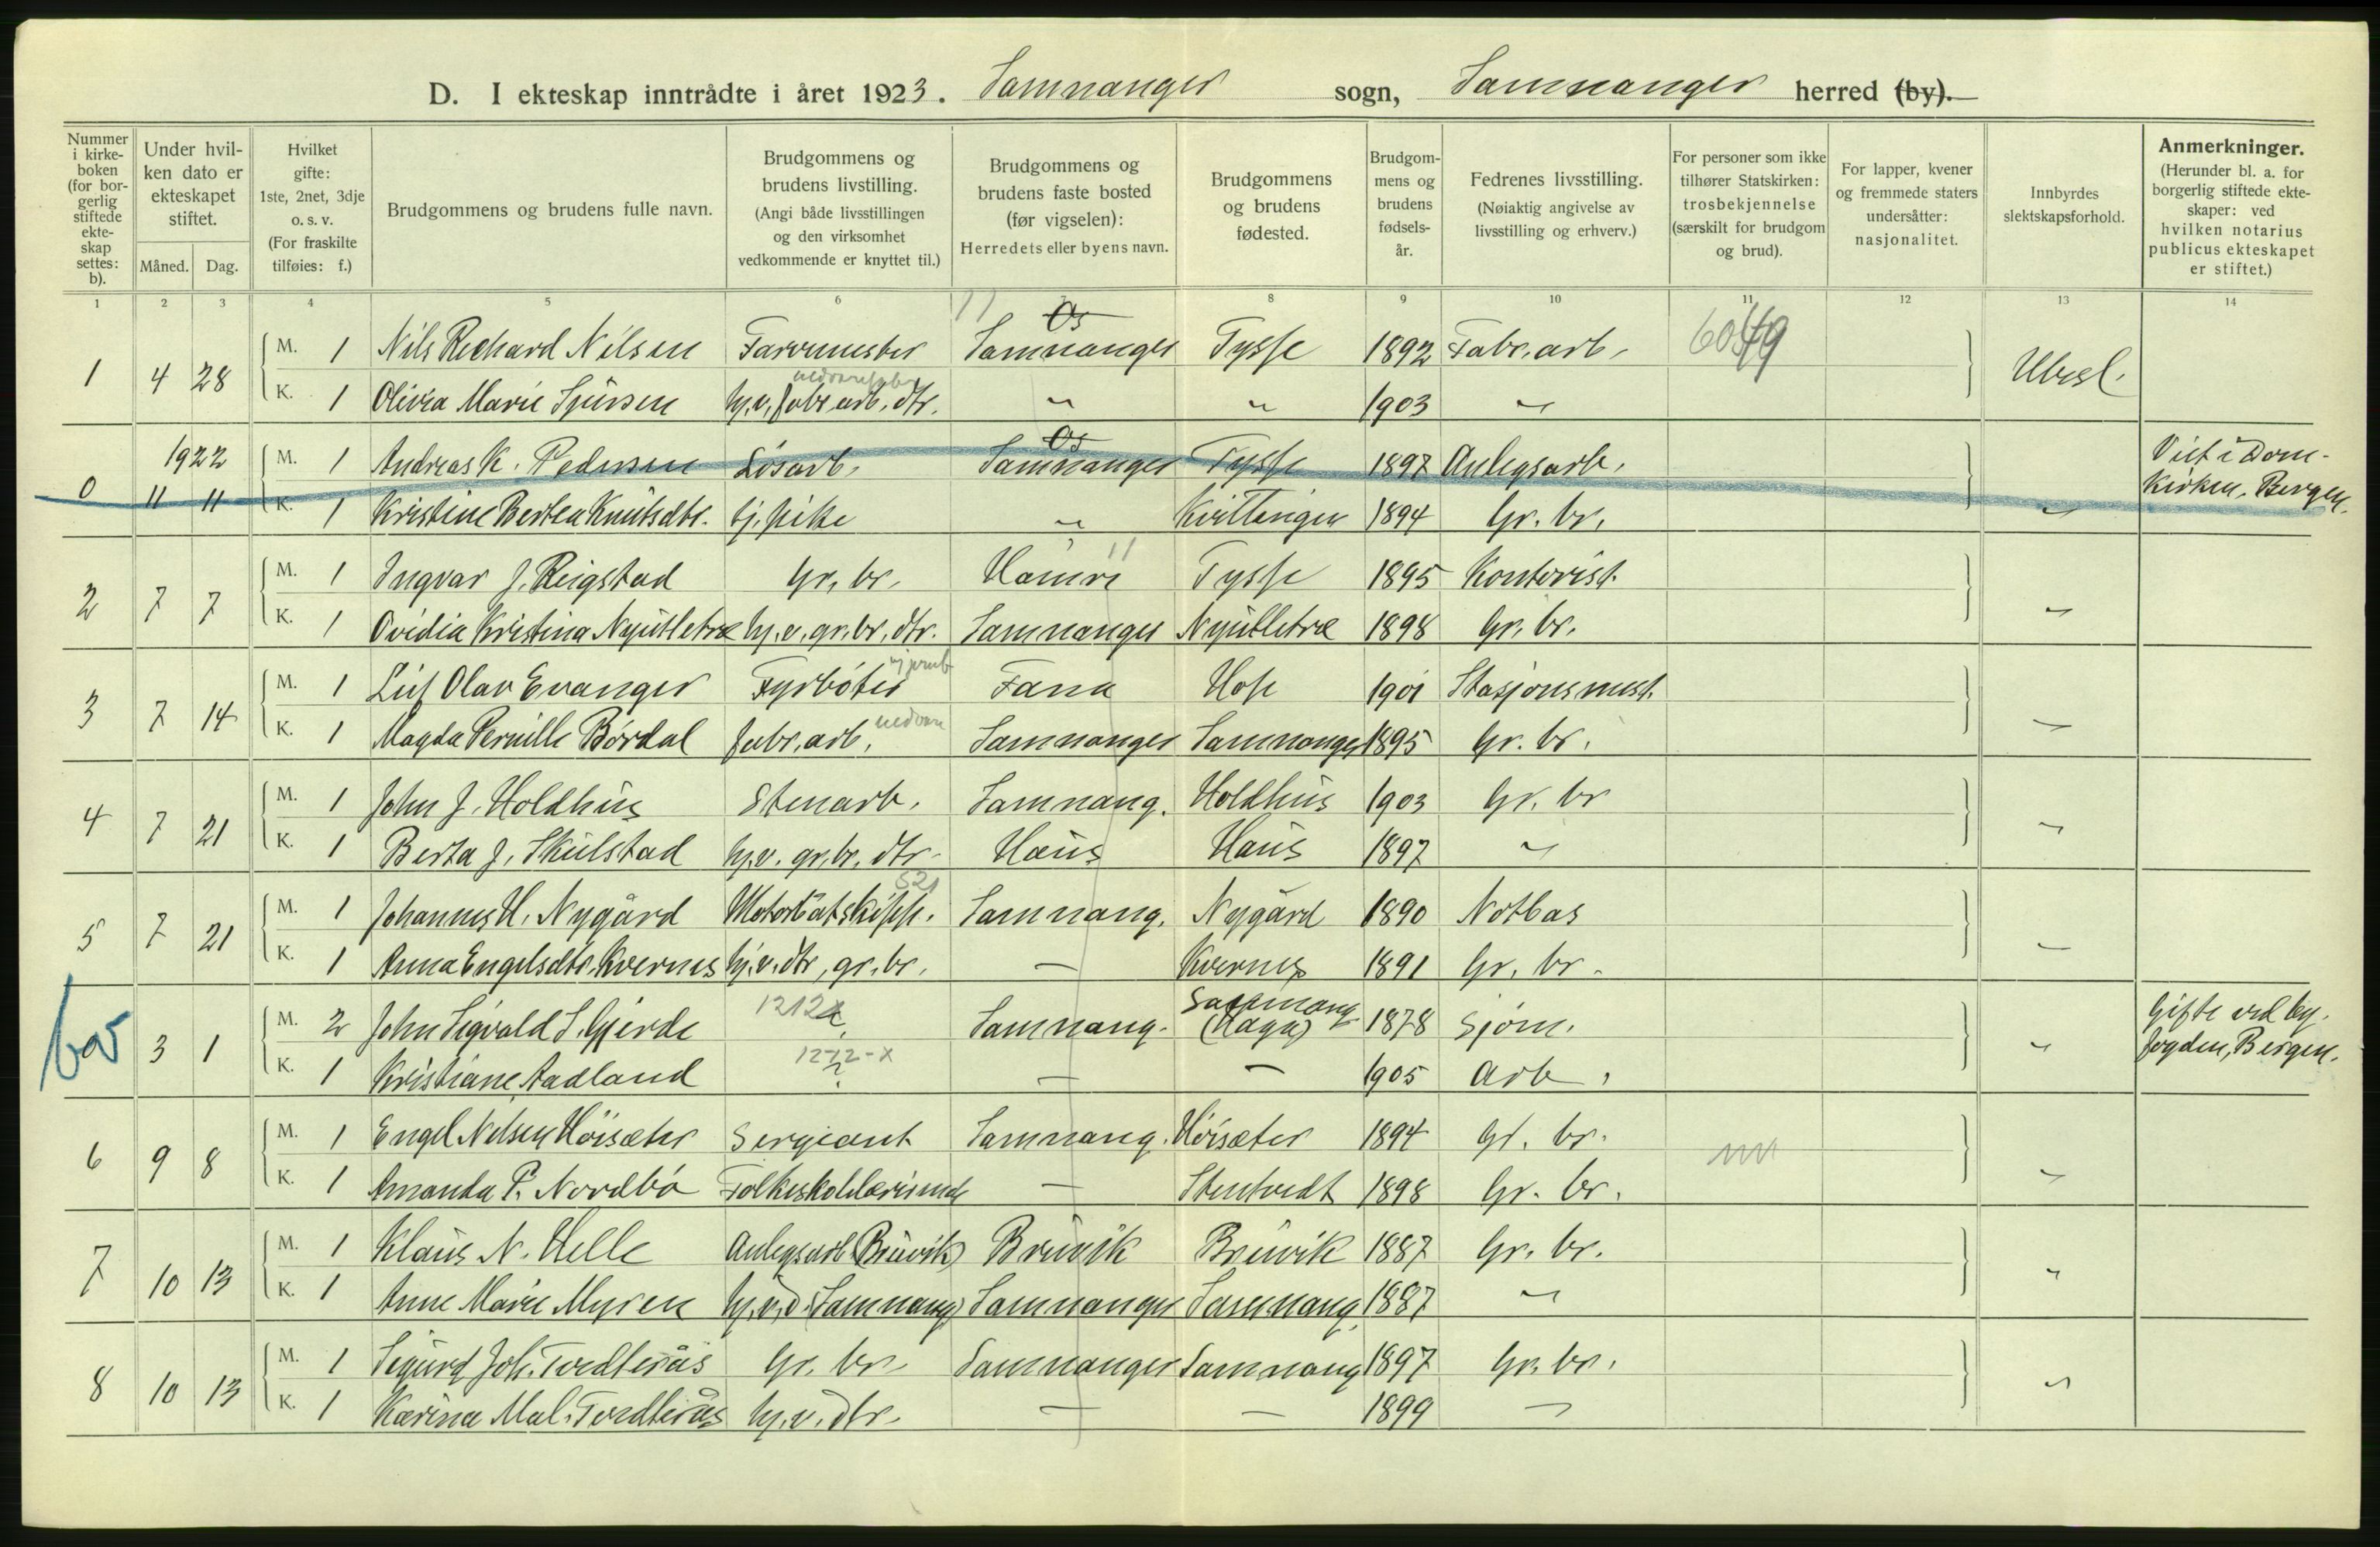 D. I ekteskap inntrådte i året 1923. Samnanger sogn, Samnanger herred (by).
Nummer i kirke-boken (for bor-gerlig stiftede ekte-skap settes: b).
Under hvil-ken dato er ekteskapet stiftet.
Måned. Dag.
Hvilket gifte: 1ste, 2net, 3dje o. s. v. (For fraskilte tilføies: f.)
Brudgommens og brudens fulle navn.
Brudgommens og brudens livstilling. (Angi både livsstillingen og den virksomhet vedkommende er knyttet til.)
Brudgommens og brudens faste bosted (før vigselen): Herredets eller byens navn.
Brudgommens og brudens fødested.
Brudgom-mens og brudens fødsels-år.
Fedrenes livsstilling. (Nøiaktig angivelse av livsstilling og erhverv.)
For personer som ikke tilhører Statskirken: trosbekjennelse (særskilt for brudgom og brud).
For lapper, kvener og fremmede staters undersåtter: nasjonalitet.
Innbyrdes slektskapsforhold.
Anmerkninger. (Herunder bl. a. for borgerlig stiftede ekte-skaper: ved hvilken notarius publicus ekteskapet er stiftet.)
1 2 3 4 5 6 8 9 10 11 12 13 14
Os
1 4 28 M. 1 Nils Rechard Nilsen Farvemester Samnanger Tysse 1892 Fabr. arb. Ubesl.
K. 1 Olivia Marie Sjursen hj. v. fabr. arb. dtr. " " 1903 "
Os
0 1922 M. 1 Andreas K. Pedersen Løsarb. Samnanger Tysse 1897 Anlegsarb. Viet i Dom-
11 11 K. 1 Kristine Bertea Knutsdtr. tj. pike " Kvittingen 1894 Gr. br. " kirken, Bergen.
2 7 7 M. 1 Ingvar J. Reigstad Gr. br. Hamre Tysse 1895 Kontorist.
K. 1 Ovidia Kristina Nyutletræ hj. v. gr. br. dtr. Samnanger Nyutletræ 1898 Gr. br. "
3 7 14 M. 1 Leif Olav Evanger Fyrbøter Fana Hose 1901 Stasjonsmest.
K. 1 Magda Pernille Børdal fabr. arb. Samnanger Samnanger 1895 Gr. br. "
4 7 21 M. 1 John J. Holdhus Stenarb. Samnang. Holdhus 1903 Gr. br
K. 1 Berta J. Skulstad hj. v. gr. br. dtr. Haus Haus 1897 " "
5 7 21 M. 1 Johannes H. Nygård Motorbåtskipp. Samnang. Nygård 1890 Notbas
K. 1 Anna Engelsdtr. Kvernes hj. v. dtr, gr. br. — Kvernes 1891 Gr. br. —
bor 3 1 M. 2 John Sigvald S. Gjerde 1212 Samnang. Samnang. (Haga) 1878 Sjøm. Gifte ved by-
K. 1 Kristiane Aadland 1212-x ? — — 1905 Arb. " fogden, Bergen.
6 9 8 M. 1 Engel Nelsen Høisæter Sergeant Samnang. Høisæter 1894 Gr. br.
K. 1 Amanda P. Nordbø Folkeskolelærerinde — Stentvedt 1898 Gr. br. "
7 10 13 M. 1 Klaus N. Helle Anlegsarb. (Bruvik) Bruvik Bruvik 1887 Gr. br.
K. 1 Anne Marie Myren hj. v. d. (Samnang) Samnanger Samnang. 1887 " "
8 10 13 M. 1 Sigurd Joh. Tordterås Gr. br. Samnanger Samnang 1897 Gr. br.
K. 1 Karina Mal. Tordterås hj. v. dtr. — — 1899 — "